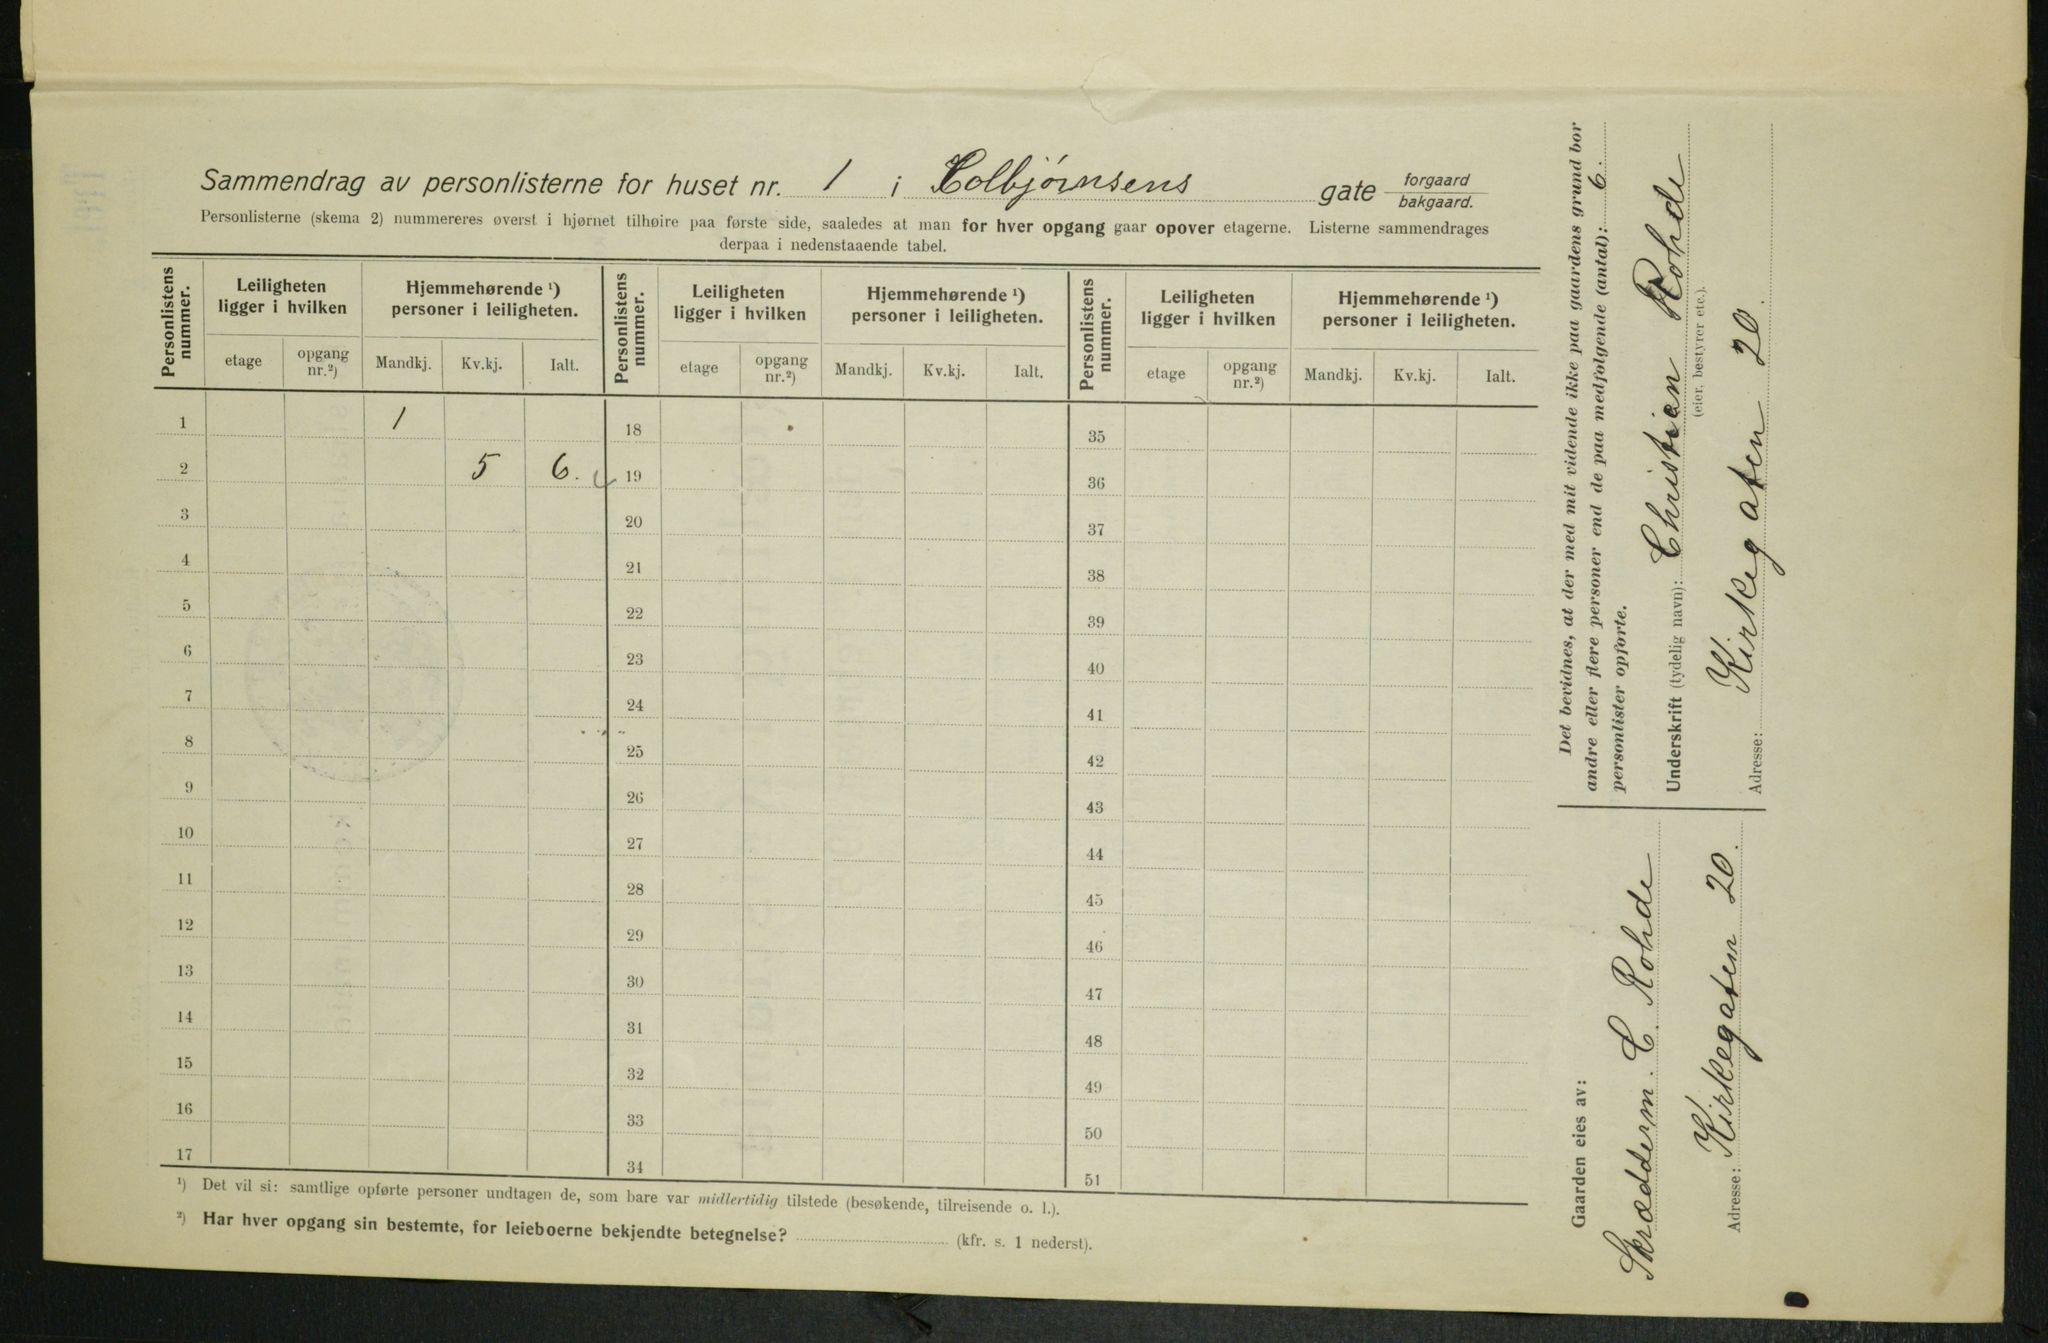 Sammendrag av personlisterne for huset nr. 1 i Colbjørnsens gate forgaard bakgaard.
Personlisterne (skema 2) nummereres øverst i hjørnet tilhøire paa første side, saaledes at man for hver opgang gaar opover etagerne. Listerne sammendrages
derpaa i nedenstaaende tabel.
Personlistens nummer. Leiligheten ligger i hvilken Hjemmehørende ¹) personer i leiligheten. Personlistens nummer. Leiligheten ligger i hvilken Hjemmehørende ¹) personer i leiligheten. Personlistens nummer. Leiligheten ligger i hvilken Hjemmehørende ¹) personer i leiligheten.
etage opgang nr.²) Mandkj. Kv.kj. Ialt. etage opgang nr.²) Mandkj. Kv.kj. Ialt. etage opgang nr.²) Mandkj. Kv.kj. Ialt.
1 1 18 35
2 5 6. 19 36
3 20 37
4 21 38
5 22 39
6 23 40
7 24 41
8 25 42
9 26 43
10 27 44
11 28 45
12 29 46
13 30 47
14 31 48
15 32 49
16 33 50
17 34 51
¹) Det vil si: samtlige opførte personer undtagen de, som bare var midlertidig tilstede (besøkende, tilreisende o. l.).
²) Har hver opgang sin bestemte, for leieboerne bekjendte betegnelse? (kfr. s. 1 nederst).
Det bevidnes, at der med mit vidende ikke paa gaardens grund bor
andre eller flere personer end de paa medfølgende (antal): 6.
personlister opførte.
Underskrift (tydelig navn): Christian Rohde
(eier, bestyrer etc.).
Adresse: Kirkegaten 20.
Gaarden eies av:
Skræddem. C. Rohde
Adresse: Kirkegaten 20.